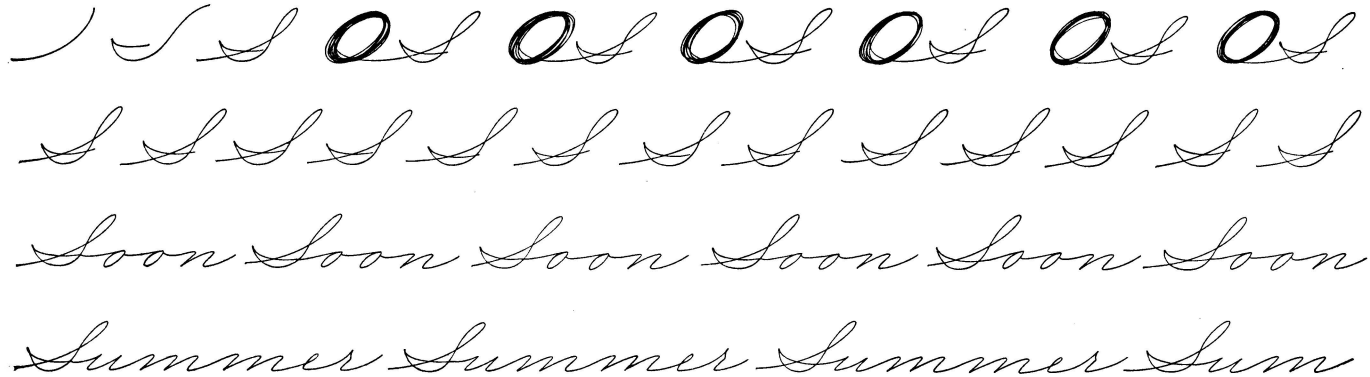 S S S S S S S
S S S S S S S S S S S S S
Soon Soon Soon Soon Soon Soon
Summer Summer Summer Sum